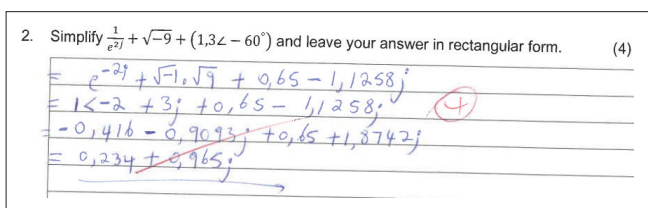 2. Simplify 1/e^{2j} + √−9 + (1,3∠ − 60°) and leave your answer in rectangular form. (4)
= e^{-2j} + √-1 . √9 + 0,65 - 1,1258j
= 1<-2 + 3j + 0,65 - 1,1258j 4
= -0,416 - 0,9093j + 0,65 + 1,8742j
= 0,234 + 0,965j